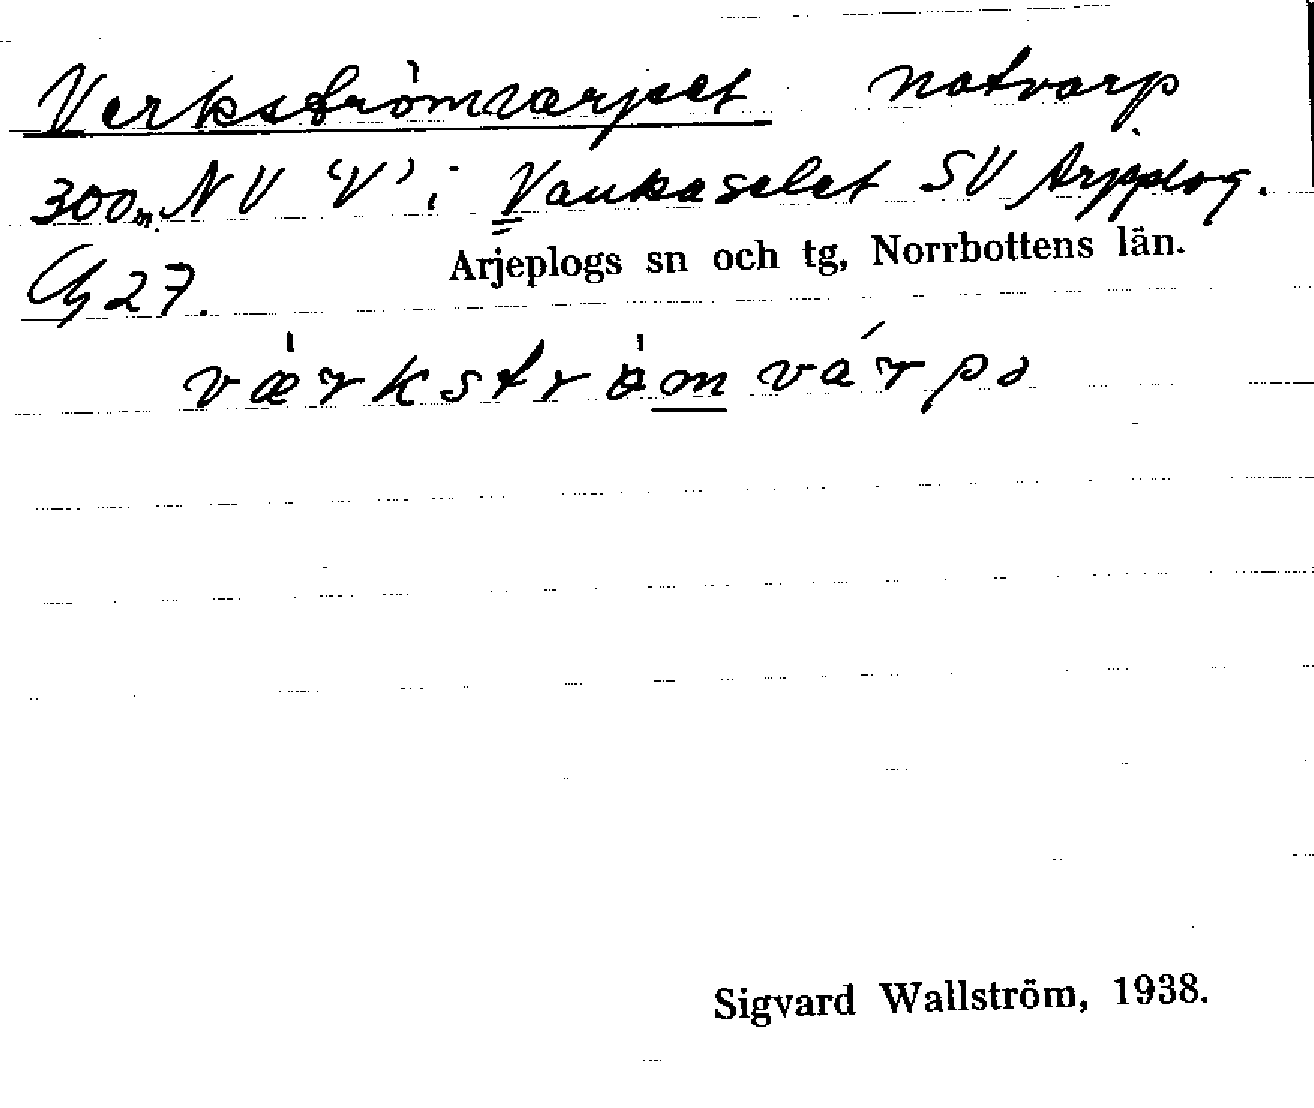 Verkströmvarpet notvarp
300m NV 'V' i Vaukaselet SV Arjeplog.
Cg 27. Arjeplogs sn och tg, Norrbottens län.
værkströmvárpə
Sigvard Wallström, 1938.